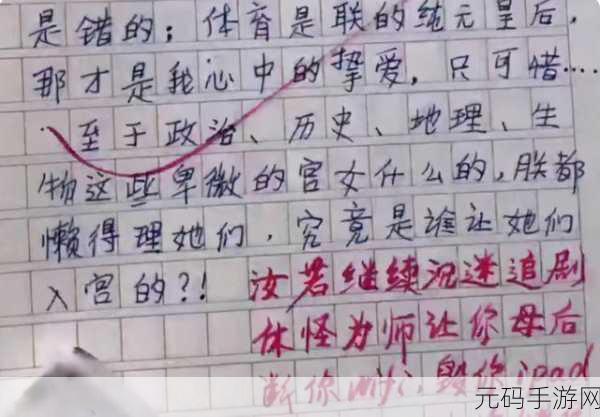 是错的；体育是联的纯元皇后，
那才是我心中的挚爱，只可惜……
至于政治、历史、地理、生
物这些卑微的宫女什么的，朕都
懒得理她们，究竟是谁让她们
入宫的？！汝若继续沉迷追剧
休怪为师让你母后
断你wifi，毁你ipad
元码手游网